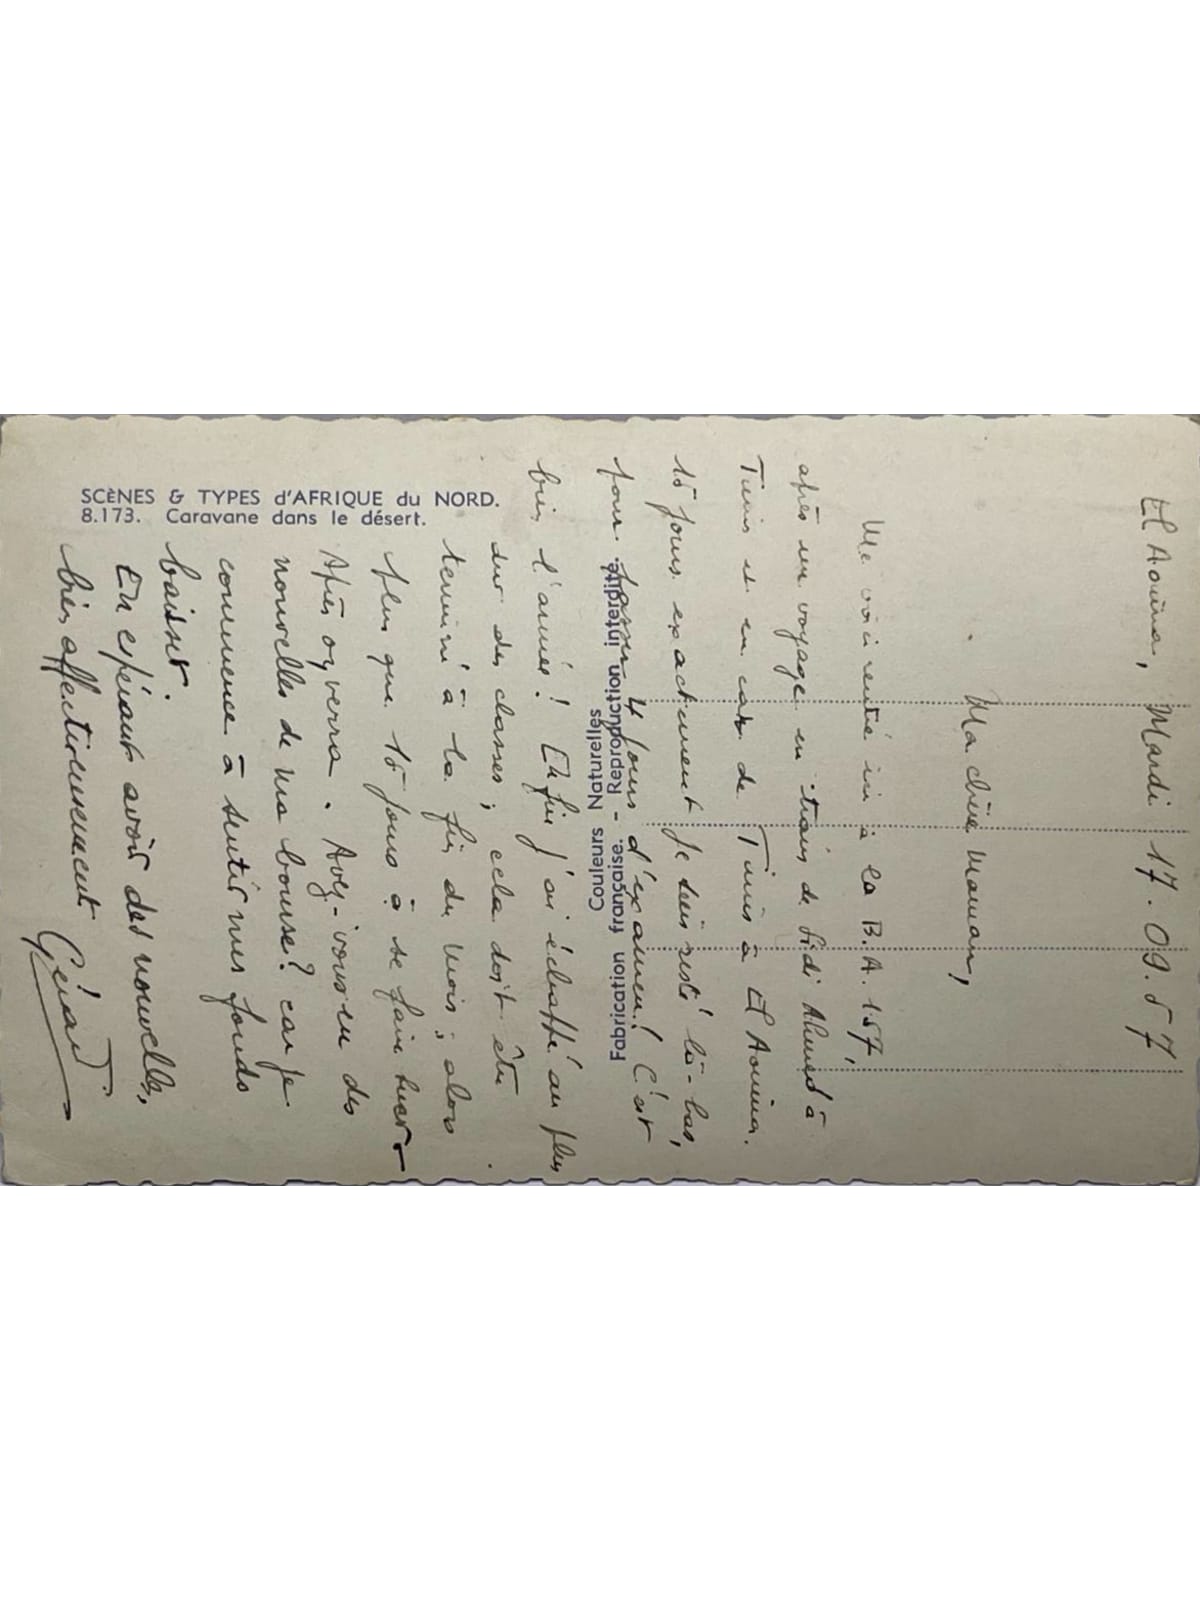 SCÈNES & TYPES d'AFRIQUE du NORD.
8.173. Caravane dans le désert.
Couleurs Naturelles
Fabrication française. - Reproduction interdite.
El Aouina, Mardi 17.09.57
Ma chère Maman,
Me voici rentré ici à la B.A. 157,
après un voyage en train de Sidi Ahmed à
Tunis et en car de Tunis à El Aouina.
15 jours exactement je suis resté là-bas,
pour passer 4 jours d'examen! C'est
bien l'armée! Enfin j'ai échappé au plus
dur des classes; cela doit être
terminé à la fin du mois; alors
plus que 15 jours à se faire suer
Après on verra. Avez-vous eu des
nouvelles de ma bourse? car je
commence à sentir mes fonds
baisser.
En espérant avoir des nouvelles,
bien affectueusement
Gérard